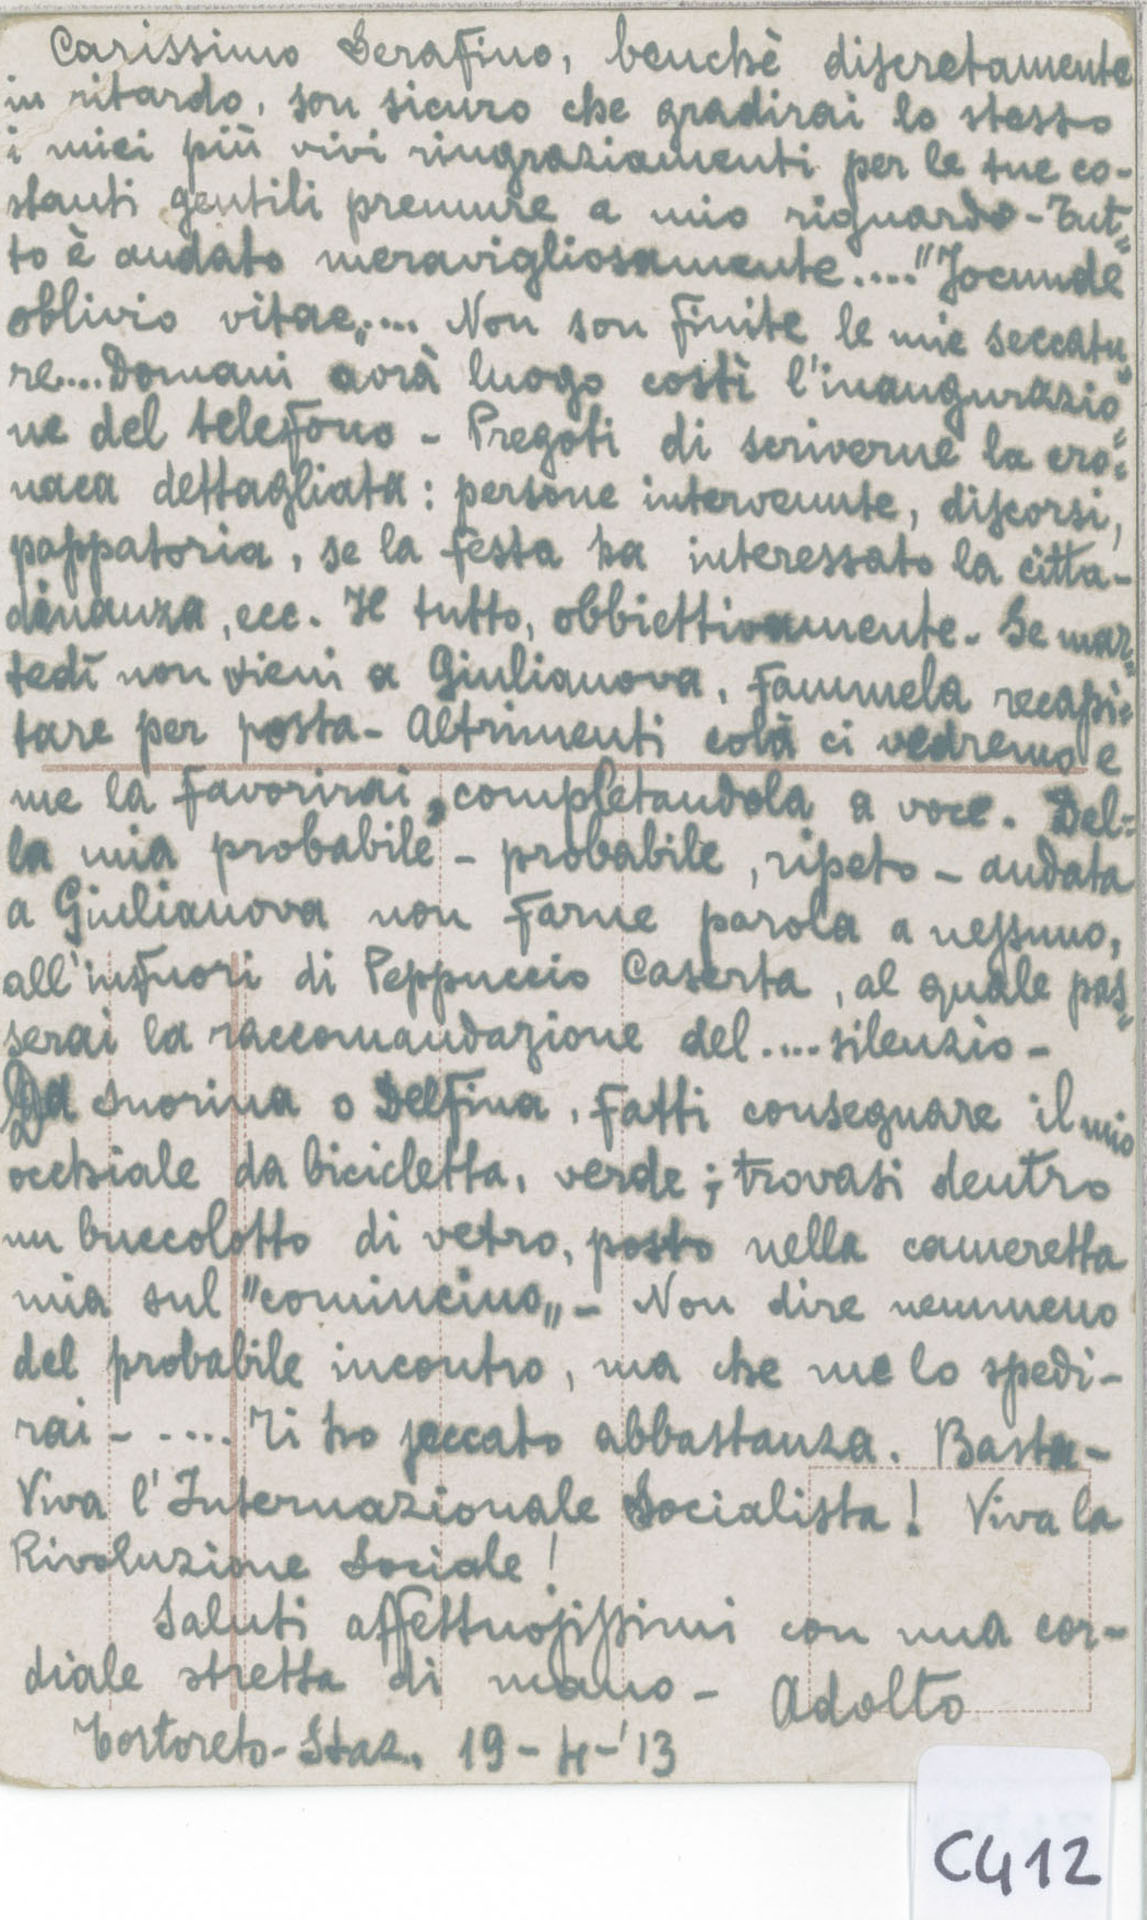 Carissimo Serafino, benchè discretamente
in ritardo, son sicuro che gradirai lo stesso
i miei più vivi ringraziamenti per le tue co-
stanti gentili premure a mio riguardo - Tut=
to è andato meravigliosamente.... "Jocunde
oblivio vitae„.... Non son finite le mie seccatu=
re.... Domani avrà luogo costì l'inaugurazio=
ne del telefono - Pregoti di scriverne la cro=
naca dettagliata: persone intervenute, discorsi,
pappatoria, se la festa ha interessato la citta-
dinanza, ecc. Il tutto, obbiettivamente. Se mar=
tedì non vieni a Giulianova, fammela recapi=
tare per posta - Altrimenti colà ci vedremo e
me la favorirai, completandola a voce. Del=
la mia probabile - probabile, ripeto - andata
a Giulianova non farne parola a nessuno,
all'infuori di Peppuccio Caserta, al quale pas=
serai la raccomandazione del.... silenzio -
Da Suorina o Delfina, fatti consegnare il mio
occhiale da bicicletta, verde; trovasi dentro
un buccolotto di vetro, posto nella cameretta
mia sul "comincino„ - Non dire nemmeno
del probabile incontro, ma che me lo spedi-
rai - .... Ti ho seccato abbastanza. Basta -
Viva l'Internazionale Socialista! Viva la
Rivoluzione Sociale!
Saluti affettuosissimi con una cor-
diale stretta di mano - Adolfo
Tortoreto - Staz., 19 - 4 - '13
C412